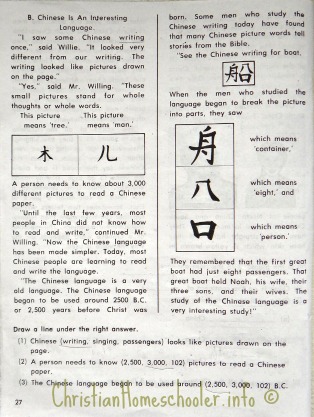 B. Chinese Is An Interesting
Language.
"I saw some Chinese writing
once," said Willie. "It looked very
different from our writing. The
writing looked like pictures drawn
on the page."
"Yes," said Mr. Willing. "These
small pictures stand for whole
thoughts or whole words.
This picture
means 'tree.'
This picture
means 'man.'
木
儿
A person needs to know about 3,000
different pictures to read a Chinese
paper.
"Until the last few years, most
people in China did not know how
to read and write," continued Mr.
Willing. "Now the Chinese language
has been made simpler. Today, most
Chinese people are learning to read
and write the language.
"The Chinese language is a very
old language. The Chinese language
began to be used around 2500 B.C.
or 2,500 years before Christ was
born. Some men who study the
Chinese writing today have found
that many Chinese picture words tell
stories from the Bible.
"See the Chinese writing for boat.
船
When the men who studied the
language began to break the picture
into parts, they saw
舟
which means
'container,'
八
which means
'eight,' and
口
which means
'person.'
They remembered that the first great
boat had just eight passengers. That
great boat held Noah, his wife, their
three sons, and their wives. The
study of the Chinese language is a
very interesting study!"
Draw a line under the right answer.
(1) Chinese (writing, singing, passengers) looks like pictures drawn on the
page.
(2) A person needs to know (2,500, 3,000, 102) pictures to read a Chinese
paper.
(3) The Chinese language began to be used around (2,500, 3,000, 102) B.C.
27
ChristianHomeschooler.info ©